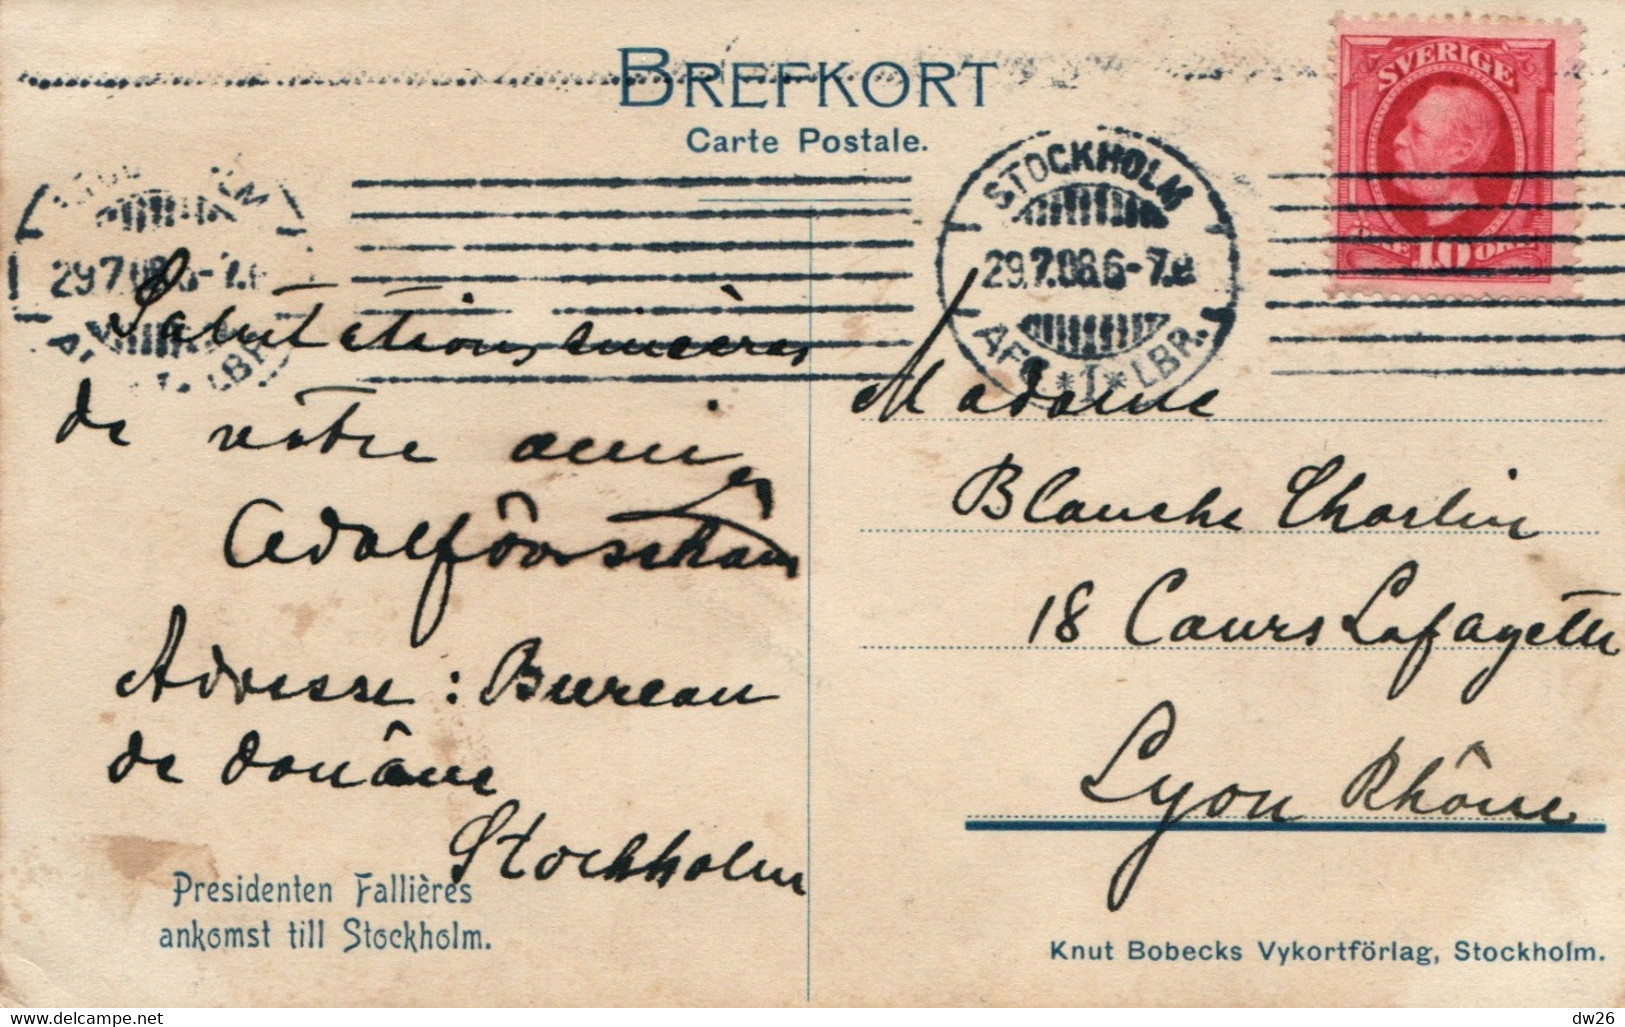 BREFKORT
Carte Postale.
SVERIGE
ÖRE 10 ÖRE
STOCKHOLM
29.7.08.6-7.
LBR.
STOCKHOLM
29.7.08.6-7.
AFG. * 1 * LBR.
Salutations sincères
de votre ami
Adolf
Adresse : Bureau
de Douâne
Stockholm
Madame
Blanche Charlin
18 Cours Lafayette
Lyon Rhône
Presidenten Fallières
ankomst till Stockholm.
Knut Bobecks Vykortförlag, Stockholm.
delcampe.net
dw26